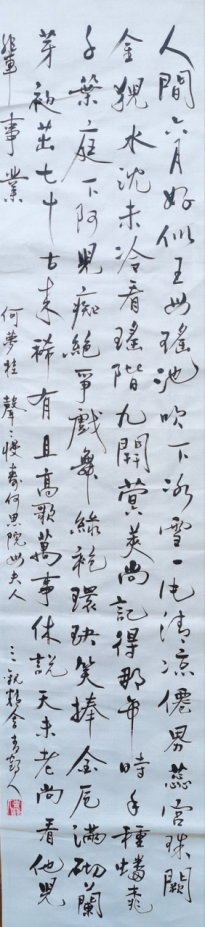 人間六月好似王母瑤池吹下冰雪一片清涼僊界蕊宮珠闕
金猊水沈未冷看瑤階九開蓂莢尚記得那年時手種蟠桃
千葉庭下阿兒癡絕爭戲舞綠袍環玦笑捧金卮滿砌蘭
芽初茁七十古來稀有且高歌萬事休說天未老尚看他兒
輩事業
何夢桂 聲〻慢 壽何思院母夫人